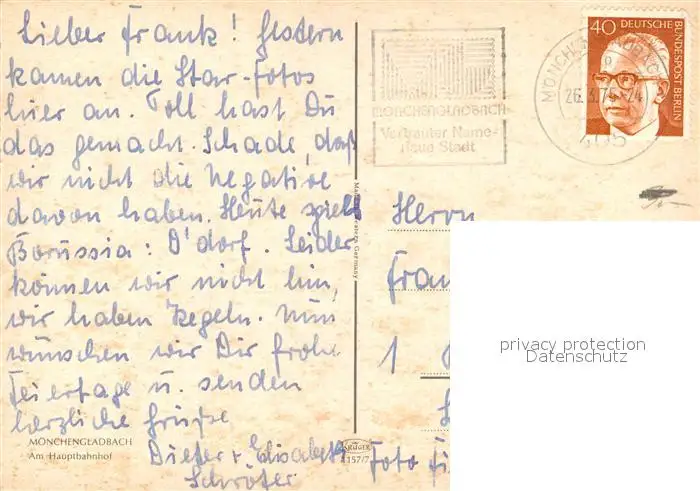 Lieber Frank! Gestern
kamen die Star-Fotos
hier an. Toll hast Du
das gemacht. Schade, daß
wir nicht die Negative
davon haben. Heute spielt
Borussia : D'dorf. Leider
können wir nicht hin,
wir haben Kegeln. Nun
wünschen wir Dir frohe
Feiertage u. senden
herzliche Grüße
Dieter + Elisabeth
Schröter
MÖNCHENGLADBACH
Am Hauptbahnhof
MÖNCHENGLADBACH
Vertrauter Name-
neue Stadt
26.3.75-24
405
40 DEUTSCHE
BUNDESPOST BERLIN
Herrn
Fran
1
Foto
KRÜGER
157/7
privacy protection
Datenschutz